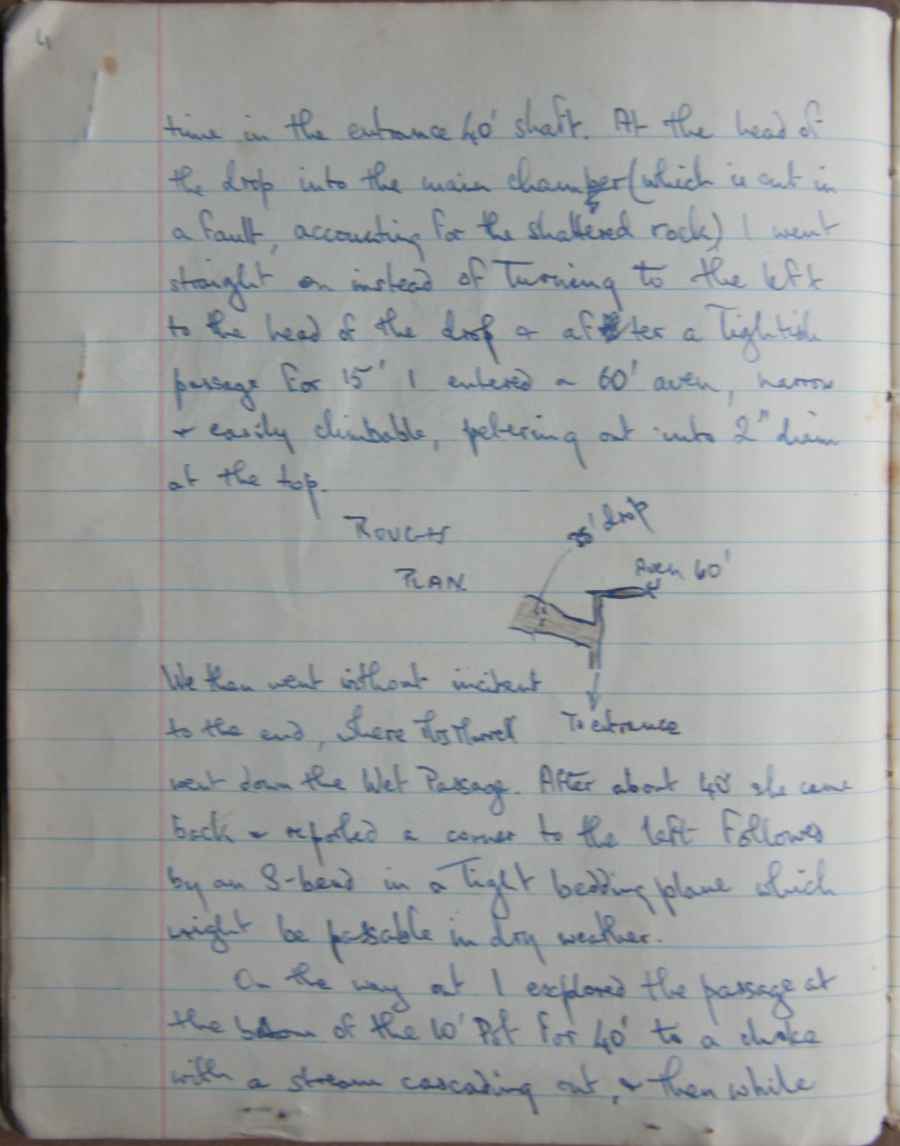 4
time in the entrance 40' shaft. At the head of
the drop into the main chamber (which is cut in
a fault, accounting for the shattered rock) I went
straight on instead of turning to the left
to the head of the drop & after a tightish
passage for 15' I entered a 60' aven, narrow
& easily climbable, petering out into 2" diam
at the top.
ROUGH
PLAN
35' drop
Aven 60'
We then went without incident
to the end, where
To entrance
went down the Wet Passage. After about 40' she came
back & reported a corner to the left followed
by an S-bend in a tight bedding plane which
might be passable in dry weather.
On the way out I explored the passage at
the bottom of the 10' Pit for 40' to a choke
with a stream cascading out, & then while